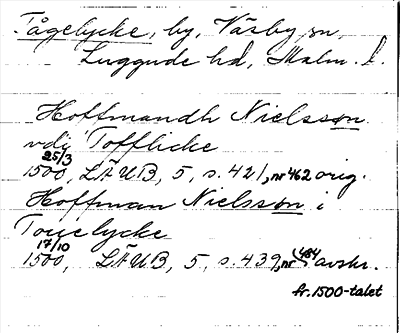 Tågelycke, by, Väsby sn,
Luggude hd, Malm. l.
Hoffmandh Nielsson
vdij Tofflicke
25/3
1500, LÄUB, 5, s. 421, nr 462 orig.
Hoffman Nielsson i
Touelycke
17/10
1500, LÄUB, 5, s. 439, nr 484 avskr.
fr. 1500-talet